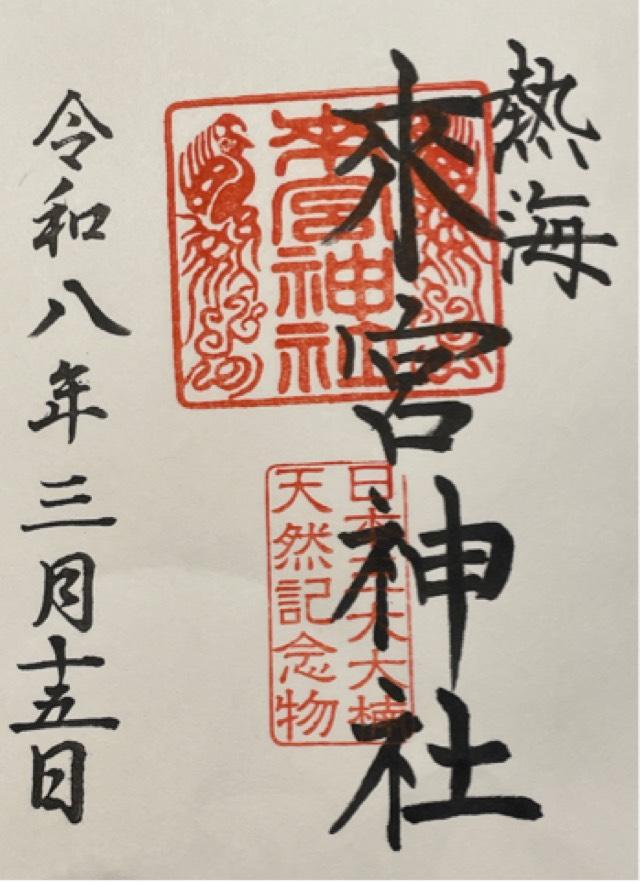 熱海
來宮神社
來宮神社
日本 木大楠
天然記念物
令和八年三月十五日